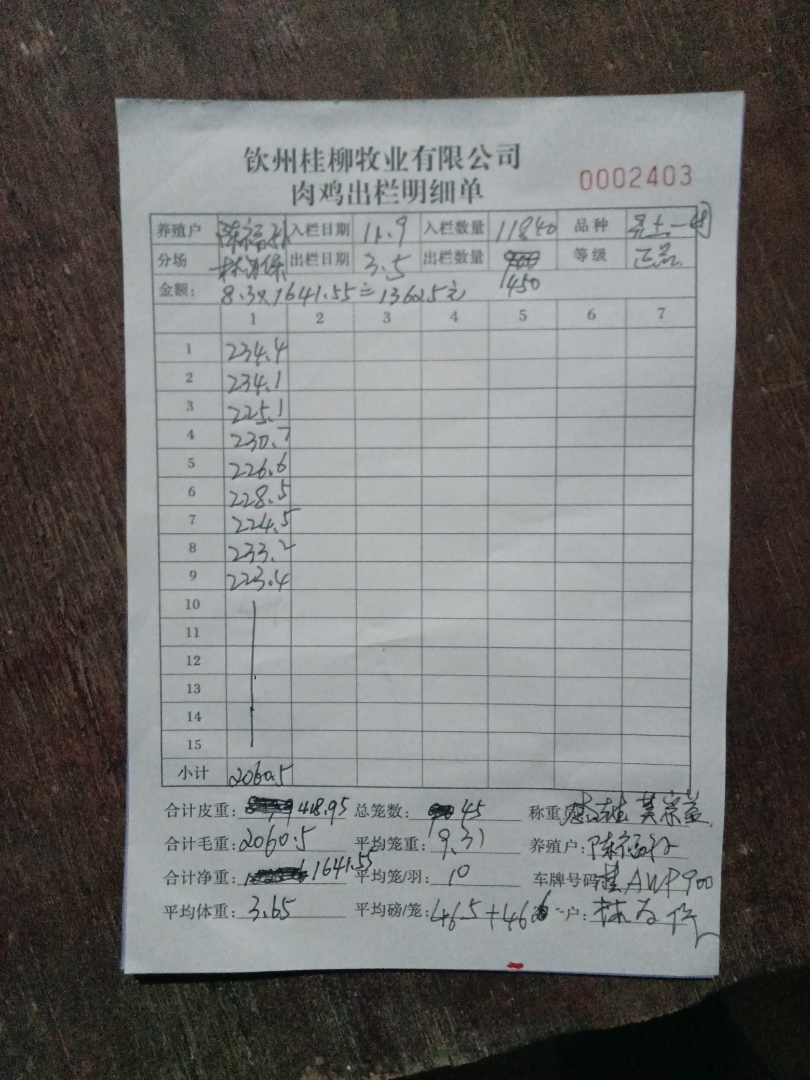 钦州桂柳牧业有限公司
肉鸡出栏明细单 0002403
养殖户 陈福 入栏日期 11.9 入栏数量 11840 品种
分场 出栏日期 3.5 出栏数量 450 等级 正品
金额: 8.3×1641.55=13625元
1 2 3 4 5 6 7
1 234.4
2 234.1
3 225.1
4 230.7
5 226.6
6 228.5
7 224.5
8 233.2
9 223.4
10
11
12
13
14
15
小计 2060.5
合计皮重: 418.95 总笼数: 45 称重
合计毛重: 2060.5 平均笼重: 9.31 养殖户: 陈福
合计净重: 1641.55 平均笼/羽: 10 车牌号码 桂AWP900
平均体重: 3.65 平均磅/笼: 46.5+46 户: 林